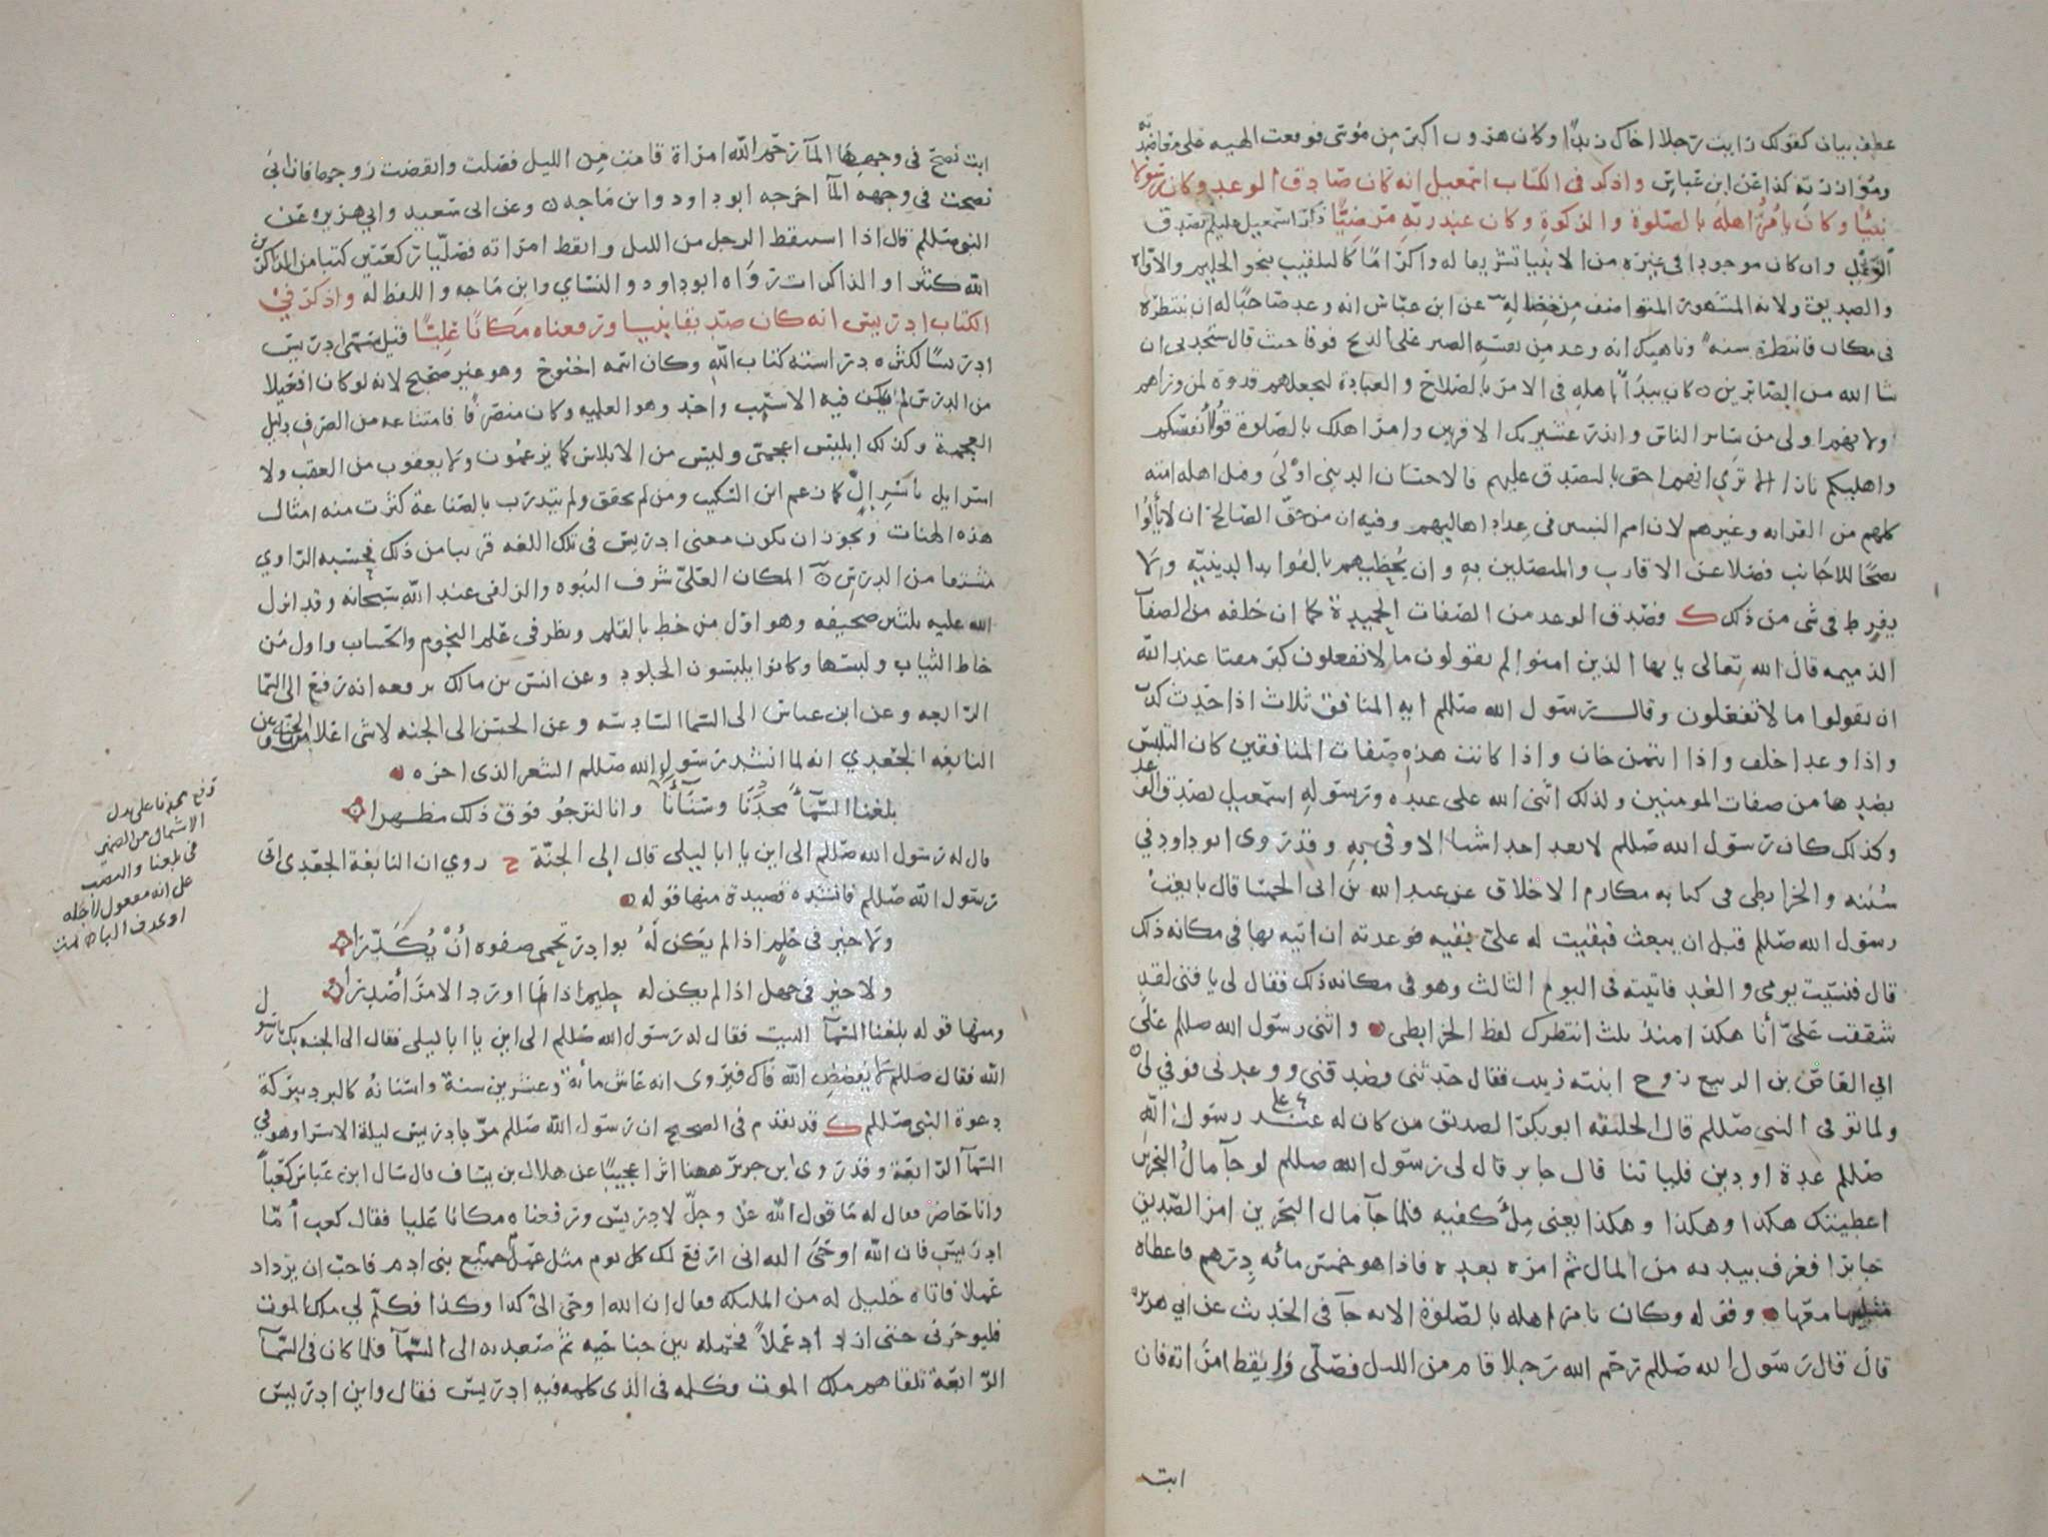 عطف بيان كقولك رايت رجلا اخاك زيدا وكان هرون اكبر من موسى فوقعت الهبه على معاضدته
وموازرته كذا عن ابن عباس واذكر في الكتاب اسمعيل انه كان صادق الوعد وكان رسولا
نبيا وكان يامر اهله بالصلوة والزكوة وكان عند ربه مرضيا ذكر اسمعيل عليلم بصدق
الوعد وان كان موجودا في غيره من الانبيا تشريفا له واكراما كالتلقيب بنحو الحليم والاواه
والصديق ولانه المشهور المتواصف من خصاله عن ابن عباس انه وعد صاحبا له ان ينتظره
في مكان فانتظره سنه وناهيك انه وعد من نفسه الصبر على الذبح فوفا حيث قال ستجدني ان
شا الله من الصابرين كان يبدأ باهله في الامر بالصلاح والعبادة ليجعلهم قدوة لمن وراهم
ولانهم اولى من ساير الناس وانذر عشيرتك الاقربين وامر اهلك بالصلوة قوا انفسكم
واهليكم نارا الا ترى انهم احق بالتصدق عليهم فالاحسان الديني اولى وقيل اهله امته
كلهم من القرابه وغيرهم لان امم النبيين في عداد اهاليهم وفيه ان من حق الصالح ان لا يألوا
نصحا للاجانب فضلا عن الاقارب والمتصلين به وان يحظيهم بالفوايد الدينيه ولا
يفرط في شى من ذلك ك وصدق الوعد من الصفات الحميدة كما ان خلفه من الصفات
الذميمه قال الله تعالى يايها الذين امنوا لم تقولون ما لا تفعلون كبر مقتا عند الله
ان تقولوا ما لا تفعلون وقال رسول الله صللم ايه المنافق ثلاث اذا حدث كذب
واذا وعد اخلف واذا ايتمن خان واذا كانت هذه صفات المنافقين كان التلبس
بضدها من صفات المومنين ولذلك اثنى الله على عبده ورسوله اسمعيل بصدق الوعد
وكذلك كان رسول الله صللم لا يعد احدا شيا الا وفى به وقد روى ابو داود في
سننه والخرايطي في كتابه مكارم الاخلاق عن عبد الله بن ابي الحمسا قال بايعت
رسول الله صللم قبل ان يبعث فبقيت له علي بقيه فوعدته ان اتيه بها في مكانه ذلك
قال فنسيت يومي والغد فاتيته في اليوم الثالث وهو في مكانه ذلك فقال لي يا فتى لقد
شققت علي أنا هكذا منذ ثلث انتظرك لفظ الخرايطي واثنى رسول الله صللم على
ابي العاص بن الربيع زوج ابنته زينب فقال حدثني وصدقني ووعدني فوفي لي
ولما توفي النبي صللم قال الخليفه ابو بكر الصديق من كان له عند رسول الله
صللم عدة او دين فلياتنا قال جابر قال لي رسول الله صللم لو جآ مال البحرين
اعطيتك هكذا وهكذا وهكذا يعني مِلْء كفيه فلما جآ مال البحرين امر الصديق
جابرا فغرف بيديه من المال ثم امره بعده فاذا هو خمس مائه درهم فاعطاه
مثليها معها وقوله وكان يامر اهله بالصلوة الايه جآ في الحديث عن ابي هريره
قال قال رسول الله صللم رحم الله رجلا قام من الليل فصلى وايقظ امراته فان
ابت
ابت نضح في وجهها المآ رحم الله امراة قامت من الليل فصلت وايقضت زوجها فان ابى
نضحت في وجهه المآ اخرجه ابو داود وابن ماجه وعن ابي سعيد وابي هريره عن
النبي صللم قال اذا استيقظ الرجل من الليل وايقظ امراته فصليا ركعتين كتبا من الذاكرين
الله كثيرا والذاكرات رواه ابو داود والنساي وابن ماجه واللفظ له واذكر في
الكتاب ادريس انه كان صديقا نبيا ورفعناه مكانا عليا قيل سمى ادريس
ادريسا لكثره دراسته كتاب الله وكان اسمه اخنوخ وهو غير صحيح لانه لو كان افعيلا
من الدرس لم يكن فيه الا سبب واحد وهو العلميه وكان منصرفا فامتناعه من الصرف دليل
العجمة وكذلك ابليس اعجمي وليس من الابلاس كما يزعمون ولا يعقوب من العقب ولا
اسرايل باسرال كما زعم ابن السكيت ومن لم يحقق ولم يتدرب بالصناعة كثرت منه امثال
هذه الهنات ويجوز ان يكون معنى ادريس في تلك اللغه قريبا من ذلك فحسبه الراوي
مشتقا من الدرس المكان العلي شرف النبوه والزلفى عند الله سبحانه وقد انزل
الله عليه ثلثين صحيفه وهو اول من خط بالقلم ونظر في علم النجوم والحساب واول من
خاط الثياب ولبسها وكانوا يلبسون الجلود وعن انس بن مالك يرفعه انه رفع الى السما
الرابعه وعن ابن عباس الى السما السادسه وعن الحسن الى الجنه لا شى اعلا من الجنه وعن
النابغه الجعدي انه لما انشد رسول الله صللم الشعر الذى اخره
بلغنا السمآ مجدنا وسنآؤنا وانا لنرجو فوق ذلك مظهرا
قال له رسول الله صللم الى اين يا ابا ليلى قال الى الجنة ح روي ان النابغة الجعدى اتى
رسول الله صللم فانشده قصيدة منها قوله
ولا خير في حلم اذا لم يكن له بوادر تحمى صفوه أنْ يُكَدّرا
ولا خير في جهل اذا لم يكن له حليم اذا ما اورد الامر أصدرا
ومنها قوله بلغنا السمآ البيت فقال له رسول الله صللم الى اين يا ابا ليلى فقال الى الجنه بك يا رسول
الله فقال صللم لا يفضض الله فاك فيروى انه عاش مائة وعشرين سنة واسنانه كالبرد ببركة
دعوة النبى صللم ك قد تقدم في الصحيح ان رسول الله صللم مر بادريس ليلة الاسرا وهو في
السمآ الرابعة وقد روى ابن جرير ههنا اثرا عجيبا عن هلال بن يساف قال سال ابن عباس كعبا
وانا حاضر فقال له ما قول الله عز وجل لادريس ورفعناه مكانا عليا فقال كعب أما
ادريس فان الله اوحى اليه انى ارفع لك كل يوم مثل عمل جميع بنى ادم فاحب ان يزداد
عملا فاتاه خليل له من الملئكه فقال ان الله اوحى الى كذا وكذا فكلم لي ملك الموت
فليوخرني حتى ازداد عملا فحمله بين جناحيه ثم صعد به الى السمآ فلما كان في السمآ
الرابعة تلقاهم ملك الموت وكلمه في الذى كلمه فيه ادريس فقال واين ادريس
رفع مجدنا على بدل
الاشتمال من الضمير
في بلغنا والنصب
على انه مفعول لاجله